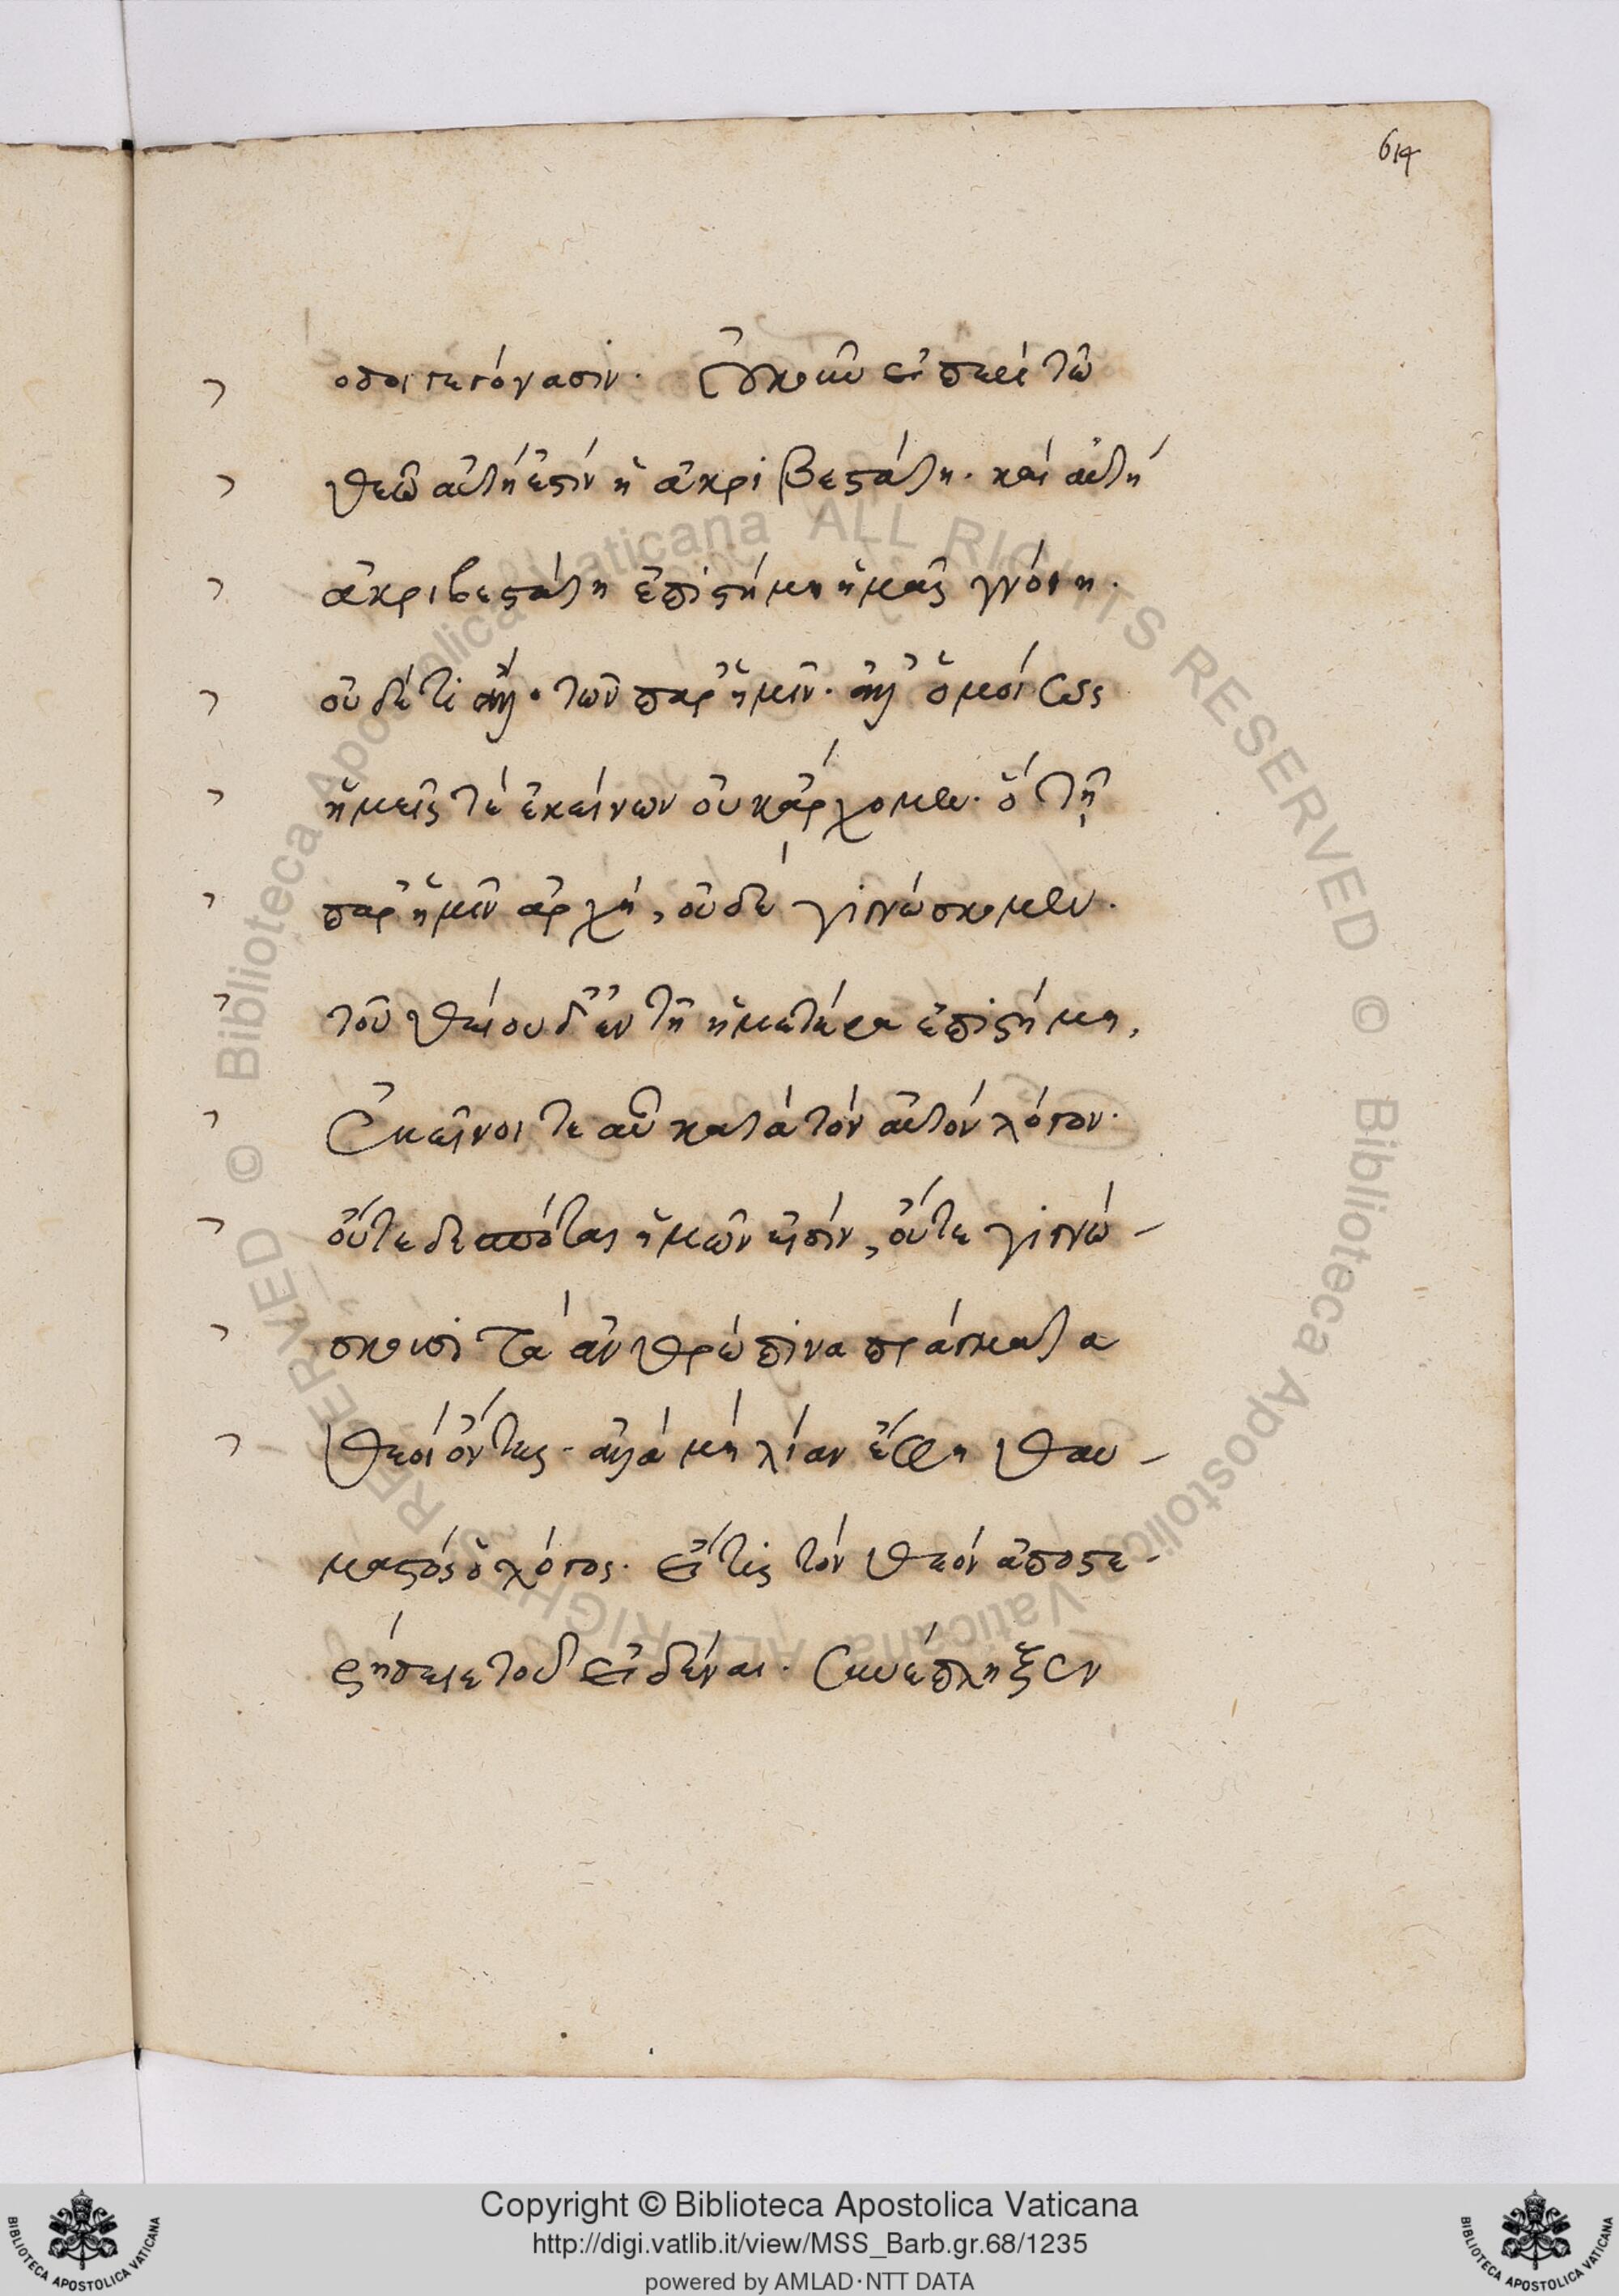 614
σοι γεγόνασιν. Οὐκοῦν εἰ παρὰ τῶ
θεῶ αὐτὴ ἐστὶν ἡ ἀκριβεστάτη. καὶ αὐτὴ
ἀκριβεστάτη ἐπιστήμη ἡμᾶς γνόιη.
οὐδέ τι ἄλλο τῶν παρ' ἡμῖν. ἀλλ' ὁμοίως
ἡμεῖς τὲ ἐκείνων οὐκ ἄρχομεν. τῆ
παρ' ἡμῖν ἀρχῆ, οὐδὲ γιγνώσκομεν.
τοῦ θείου δ' ἐν τῆ ἡμετέρα ἐπιστήμη,
Ἐκεῖνοι τε αὖ κατὰ τὸν αὐτὸν λόγον.
οὔτε δεσπόται ἡμῶν εἰσὶν, οὔτε γιγνώ-
σκουσι τὰ ἀνθρώπινα πράγματα
θεοὶ ὄντες. ἀλλὰ μὴ λίαν ἔφη θαυ-
μαστὸς ὁ λόγος. εἴ τις τὸν θεὸν ἀποστε-
ρήσειε τοῦ εἰδέναι.
Copyright © Biblioteca Apostolica Vaticana
http://digi.vatlib.it/view/MSS_Barb.gr.68/1235
powered by AMLAD·NTT DATA
BIBLIOTECA APOSTOLICA VATICANA
BIBLIOTECA APOSTOLICA VATICANA
© Biblioteca Apostolica Vaticana ALL RIGHTS RESERVED © Biblioteca Apostolica Vaticana ALL RIGHTS RESERVED